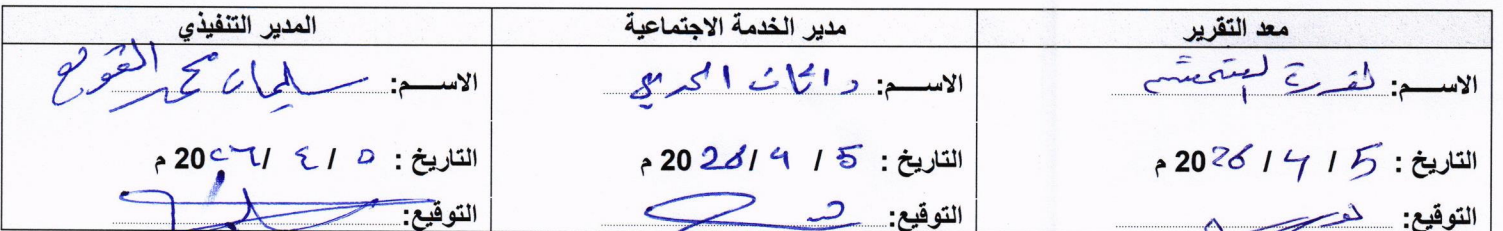 معد التقرير
مدير الخدمة الاجتماعية
المدير التنفيذي
الاســـم:
الاســـم: الحربي
الاســـم: سليمان محمد القويع
التاريخ : 5 / 4 / 2026 م
التاريخ : 5 / 4 / 2026 م
التاريخ : ٥ / ٤ / 20٢٦ م
التوقيع:
التوقيع:
التوقيع: